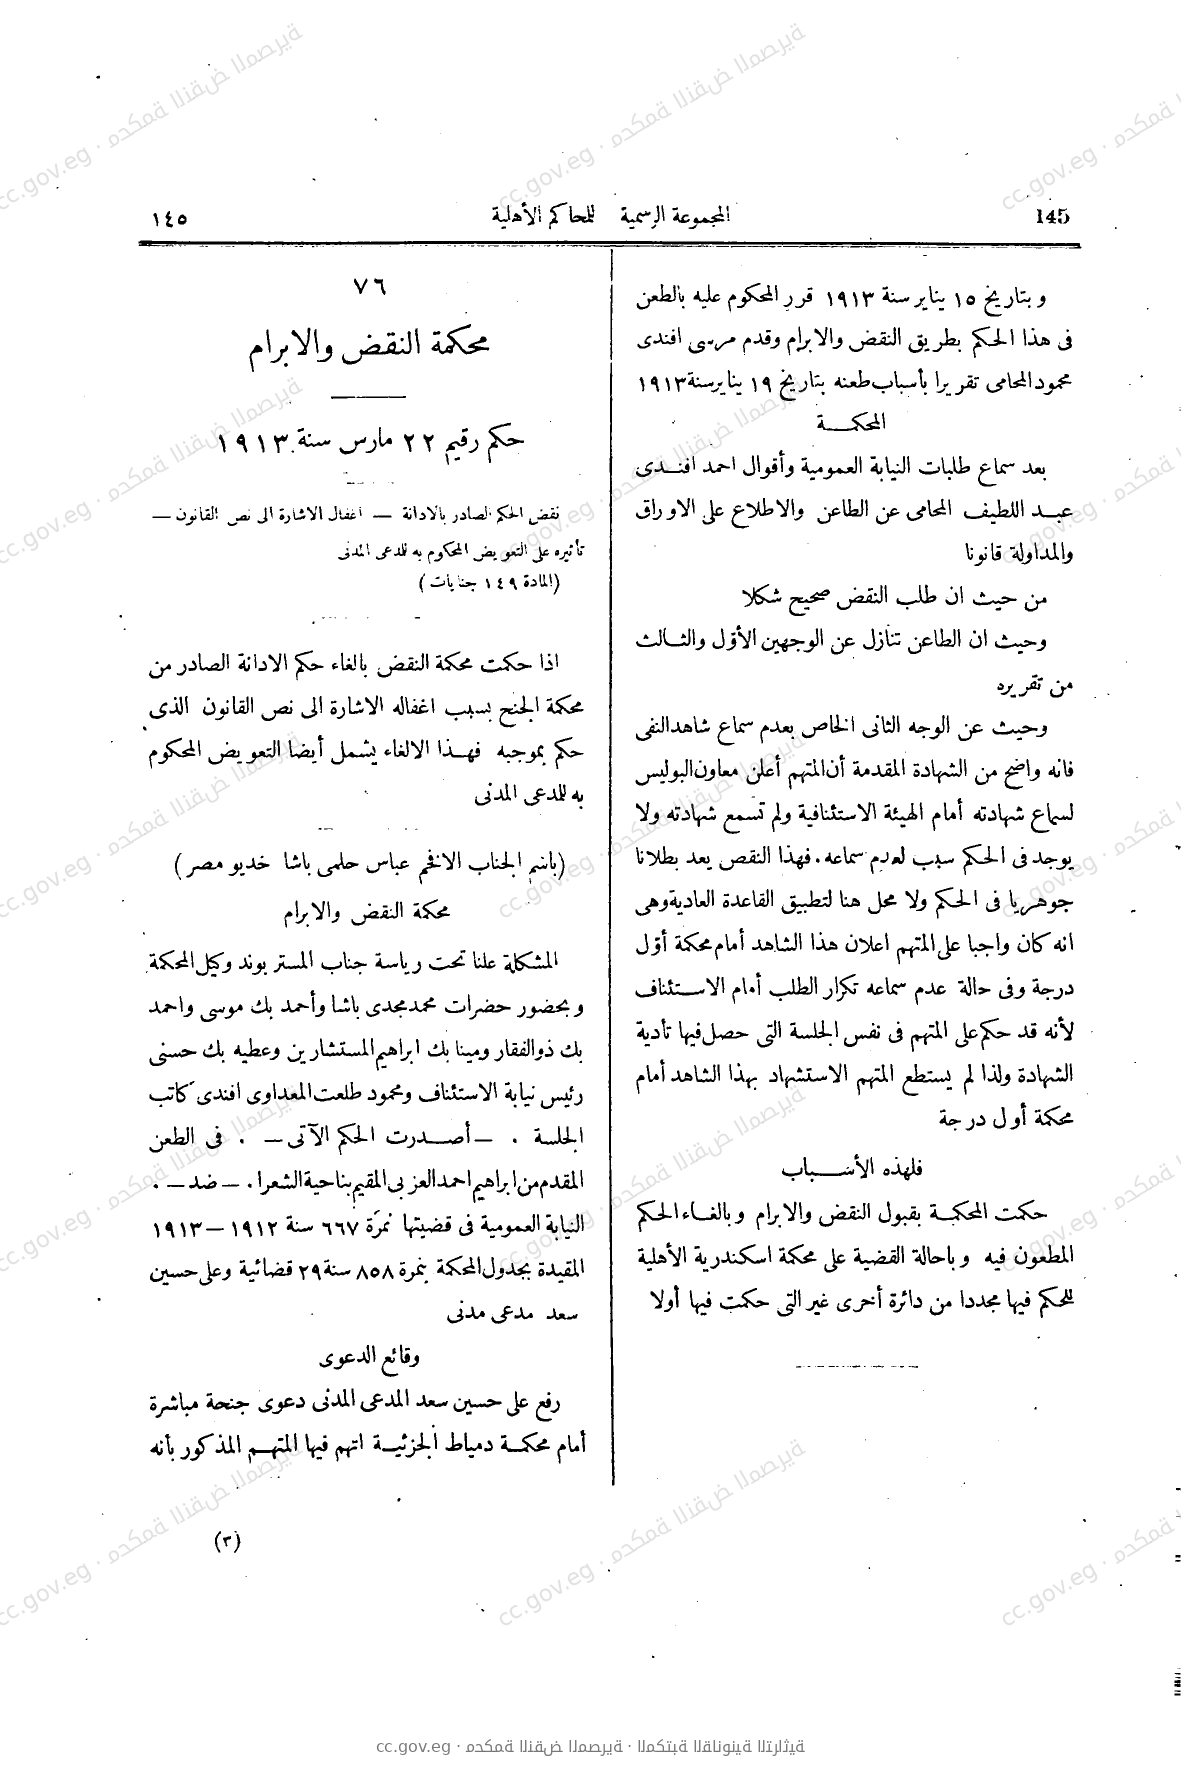 145 المجموعة الرسمية للمحاكم الأهلية ١٤٥
وبتاريخ ١٥ يناير سنة ١٩١٣ قرر المحكوم عليه بالطعن
فى هذا الحكم بطريق النقض والابرام وقدم مرسى افندى
محمود المحامى تقريرا بأسباب طعنه بتاريخ ١٩ يناير سنة ١٩١٣
المحكمة
بعد سماع طلبات النيابة العمومية وأقوال احمد افندى
عبد اللطيف المحامى عن الطاعن والاطلاع على الاوراق
والمداولة قانونا
من حيث ان طلب النقض صحيح شكلا
وحيث ان الطاعن تنازل عن الوجهين الأوّل والثالث
من تقريره
وحيث عن الوجه الثانى الخاص بعدم سماع شاهد النفى
فانه واضح من الشهادة المقدمة أن المتهم أعلن معاون البوليس
لسماع شهادته أمام الهيئة الاستئنافية ولم تسمع شهادته ولا
يوجد فى الحكم سبب لعدم سماعه. فهذا النقص يعد بطلانا
جوهريا فى الحكم ولا محل هنا لتطبيق القاعدة العادية وهى
انه كان واجبا على المتهم اعلان هذا الشاهد أمام محكمة أوّل
درجة وفى حالة عدم سماعه تكرار الطلب أمام الاستئناف
لأنه قد حكم على المتهم فى نفس الجلسة التى حصل فيها تأدية
الشهادة ولذا لم يستطع المتهم الاستشهاد بهذا الشاهد أمام
محكمة أول درجة
فلهذه الأسباب
حكمت المحكمة بقبول النقض والابرام وبالغاء الحكم
المطعون فيه وباحالة القضية على محكمة اسكندرية الأهلية
للحكم فيها مجددا من دائرة أخرى غير التى حكمت فيها أولا
٧٦
محكمة النقض والابرام
حكم رقيم ٢٢ مارس سنة ١٩١٣
نقض الحكم الصادر بالادانة — اغفال الاشارة الى نص القانون —
تأثيره على التعويض المحكوم به للدعى المدنى
(المادة ١٤٩ جنايات)
اذا حكمت محكمة النقض بالغاء حكم الادانة الصادر من
محكمة الجنح بسبب اغفاله الاشارة الى نص القانون الذى
حكم بموجبه فهذا الالغاء يشمل أيضا التعويض المحكوم
به للمدعى المدنى
(باسم الجناب الافخم عباس حلمى باشا خديو مصر)
محكمة النقض والابرام
المشكلة علنا تحت رياسة جناب المستر بوند وكيل المحكمة
وبحضور حضرات محمد مجدى باشا وأحمد بك موسى واحمد
بك ذو الفقار ومينا بك ابراهيم المستشارين وعطيه بك حسنى
رئيس نيابة الاستئناف ومحمود طلعت المعداوى افندى كاتب
الجلسة . — أصدرت الحكم الآتى — . فى الطعن
المقدم من ابراهيم احمد العزبى المقيم بناحية الشعرا . — ضد — .
النيابة العمومية فى قضيتها نمرة ٦٦٧ سنة ١٩١٢ — ١٩١٣
المقيدة بجدول المحكمة بنمرة ٨٥٨ سنة ٢٩ قضائية وعلى حسين
سعد مدعى مدنى
وقائع الدعوى
رفع على حسين سعد المدعى المدنى دعوى جنحة مباشرة
أمام محكمة دمياط الجزئية اتهم فيها المتهم المذكور بأنه
(٣)
cc.gov.eg · محكمة النقض المصرية · المكتبة القانونية التراثية